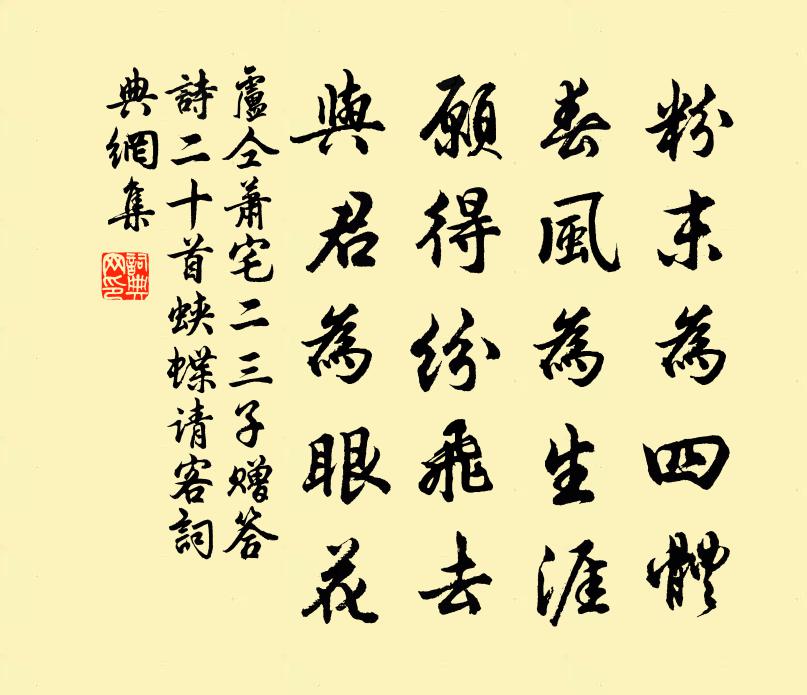 粉末為四體
春風為生涯
願得紛飛去
與君為眼花
盧仝蕭宅二三子贈答
詩二十首蛺蝶请客詞
典網集
詞典网印